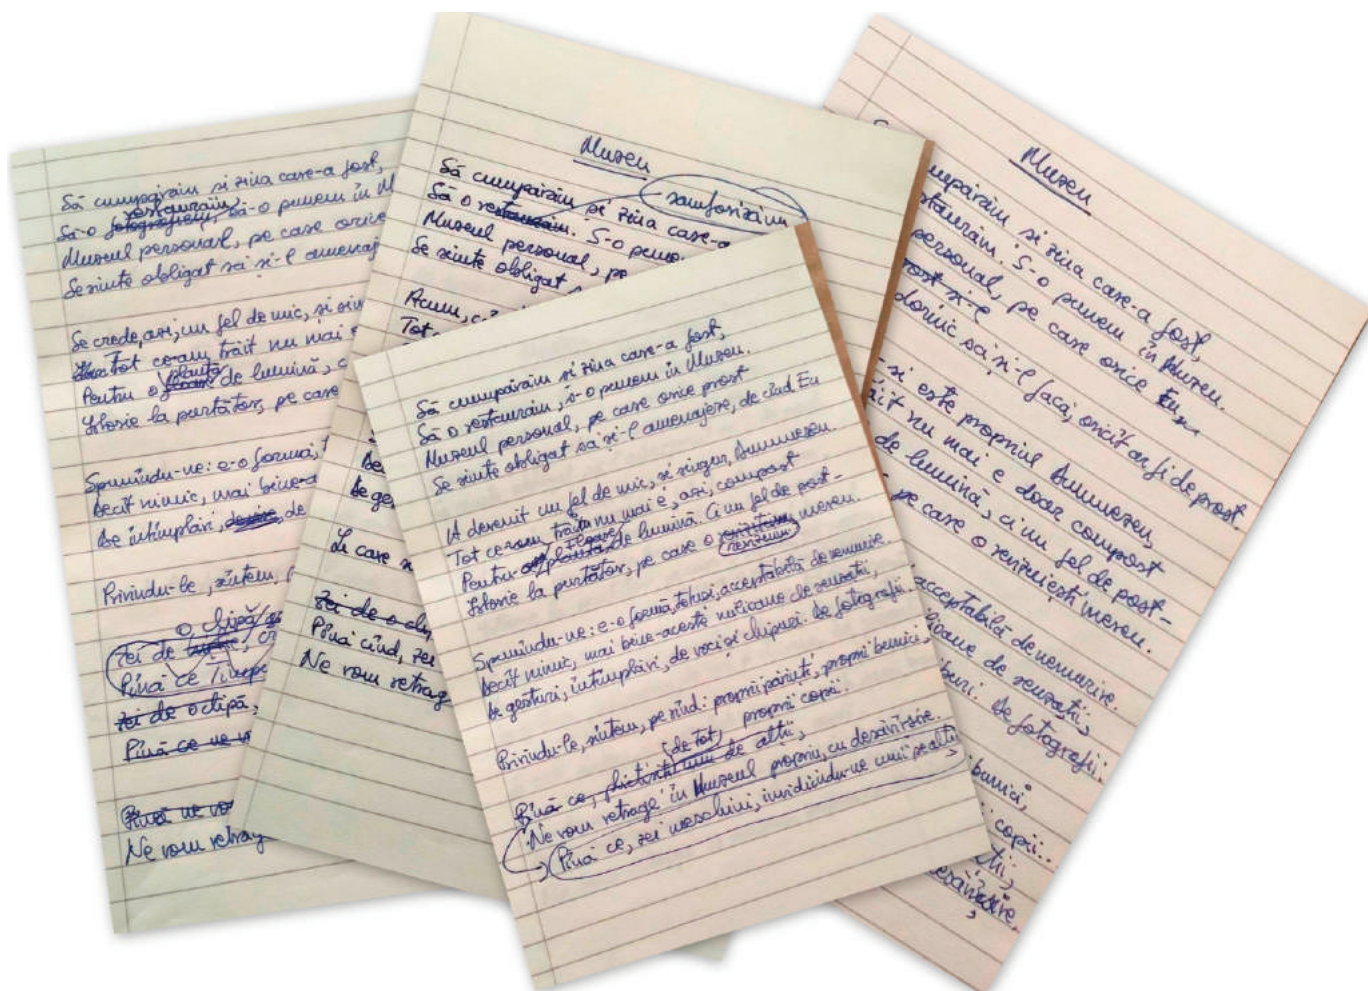 Să cumpărăm și ziua care-a fost,
restaurăm
Să-o fotografiem, să-o punem în M
Muzeul personal, pe care orice
Se simte obligat să și-l amenaj
Se crede, azi, un fel de mic, și sin
Tot ce-am trăit nu mai e
plantă
Pentru o de lumină, c
Istorie la purtător, pe care
Spunîndu-ne: e-o formă, t
Decît nimic, mai bine-a
De întîmplări, de
Privindu-le, sîntem, p
o clipă
Zei de
Pînă ce
zei de o clipă,
Pînă ce ne v
Pînă ne vo
Ne vom retrag
Muzeu
Să cumpărăm și ziua care-a
sanforizăm
Să o restaurăm. S-o punem
Muzeul personal, pe
Se simte obligat
Acum, c
Tot
Dec
De gest
Le care
Zei de o clip
Pînă cînd, zei
Ne vom retrage
Să cumpărăm și ziua care-a fost,
Să o restaurăm, s-o punem în Muzeu.
Muzeul personal, pe care orice prost
Se simte obligat să și-l amenajeze, de cînd Eu
A devenit un fel de mic, și singur, Dumnezeu.
Tot ce-am trăit nu mai e, azi, compost
floare
Pentru o plantă de lumină. Ci un fel de post-
Istorie la purtător, pe care o revizităm mereu.
revizuim
Spunîndu-ne: e-o formă, totuși, acceptabilă de nemurire.
Decît nimic, mai bine-aceste milioane de senzații,
De gesturi, întîmplări, de voci și chipuri. De fotografii.
Privindu-le, sîntem, pe rînd: proprii părinți, proprii bunici,
proprii copii.
de tot,
Pînă ce, plictisiți unii de alții,
Ne vom retrage în Muzeul propriu, cu desăvîrșire.
Pînă ce, zei meschini, invidiindu-ne unii pe alții,
Muzeu
umpărăm și ziua care-a fost,
staurăm. S-o punem în Muzeu.
personal, pe care orice Eu,
prost și-l
dornic să și-l facă, oricît ar fi de prost.
și este propriul Dumnezeu,
ăit nu mai e doar compost
de lumină, ci un fel de post-
pe care o revizuiești mereu.
acceptabilă de nemurire.
ioane de senzații,
puri. De fotografii.
bunici,
copii..
ții,
desăvîrșire.